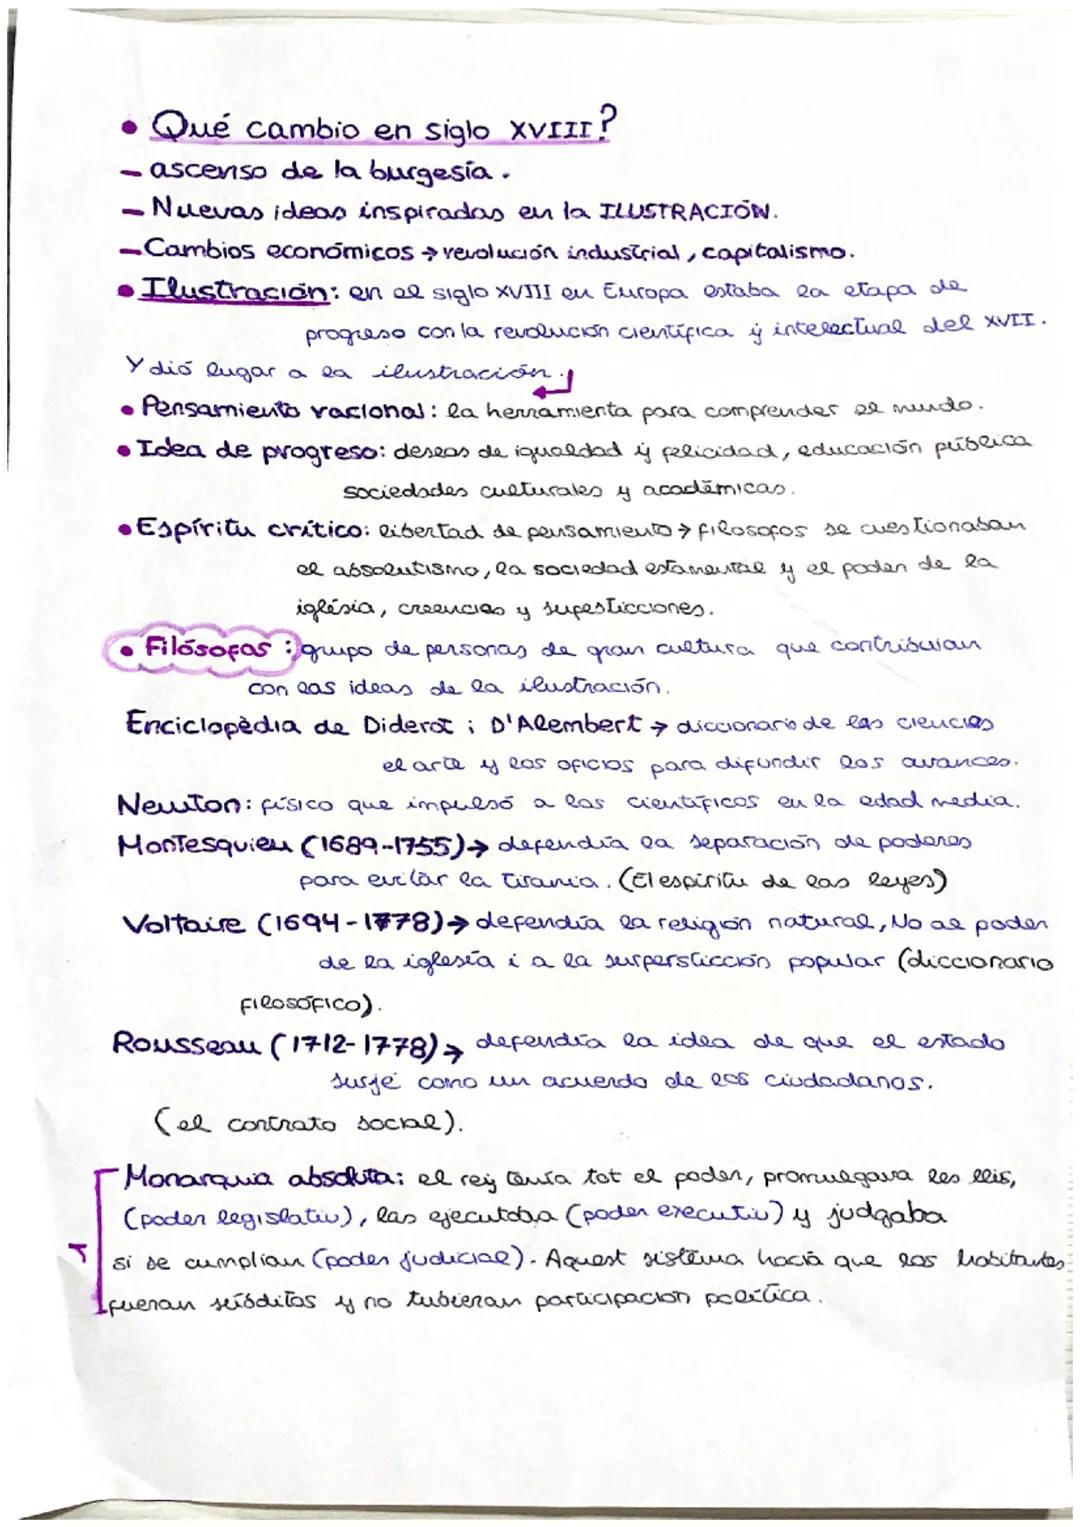 • Qué cambio en siglo XVIII?
- ascenso de la burgesía.
- Nuevas ideas inspiradas en la ILUSTRACIÓN.
- Cambios económicos → revolución industrial, capitalismo.
• Ilustración: en el siglo XVIII en Europa estaba la etapa de
progreso con la revolución científica y intelectual del XVII.
Y dió lugar a la ilustración.
• Pensamiento racional: la herramienta para comprender el mundo.
• Idea de progreso: deseos de igualdad y felicidad, educación pública
sociedades culturales y académicas.
• Espíritu crítico: libertad de pensamiento → filosofos se cuestionaban
el absolutismo, la sociedad estamental y el poder de la
iglésia, creencias y supesticciones.
• Filósofos: grupo de personas de gran cultura que contribuian
con las ideas de la ilustración.
Enciclopèdia de Diderot i D'Alembert → diccionario de las ciencias
el arte y los oficios para difundir los avances.
Newton: físico que impulsó a los científicos en la edad media.
Montesquieu (1689-1755) → defendía la separación de poderes
para evitar la tirania. (El espíritu de las leyes)
Voltaire (1694-1778) → defendía la religión natural, No al poder
de la iglesía i a la surpersticción popular (diccionario
filosófico).
Rousseau (1712-1778) → defendía la idea de que el estado
surje como un acuerdo de los ciudadanos.
(el contrato social).
Monarquia absoluta: el rey tenía tot el poder, promulgava les lleis,
(poder legislatiu), las ejecutaba (poder executiu) y judgaba
si se cumplian (poder judicial). Aquest sistema hacía que los habitantes
fueran súbditos y no tubieran participación política.